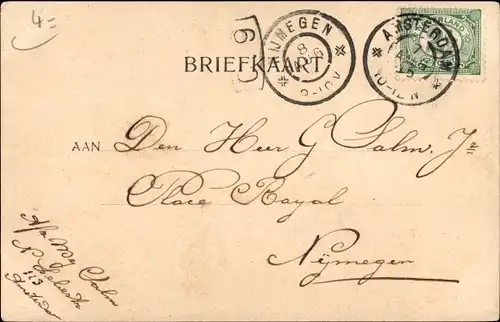 4=
NIJMEGEN
8
6
AMSTERDAM
7
6
10-12 N
NEDERLAND
BRIEFKAART
AAN Den Heer G Salm Jr
Place Royal
Nijmegen
Afz Wg Salm
113